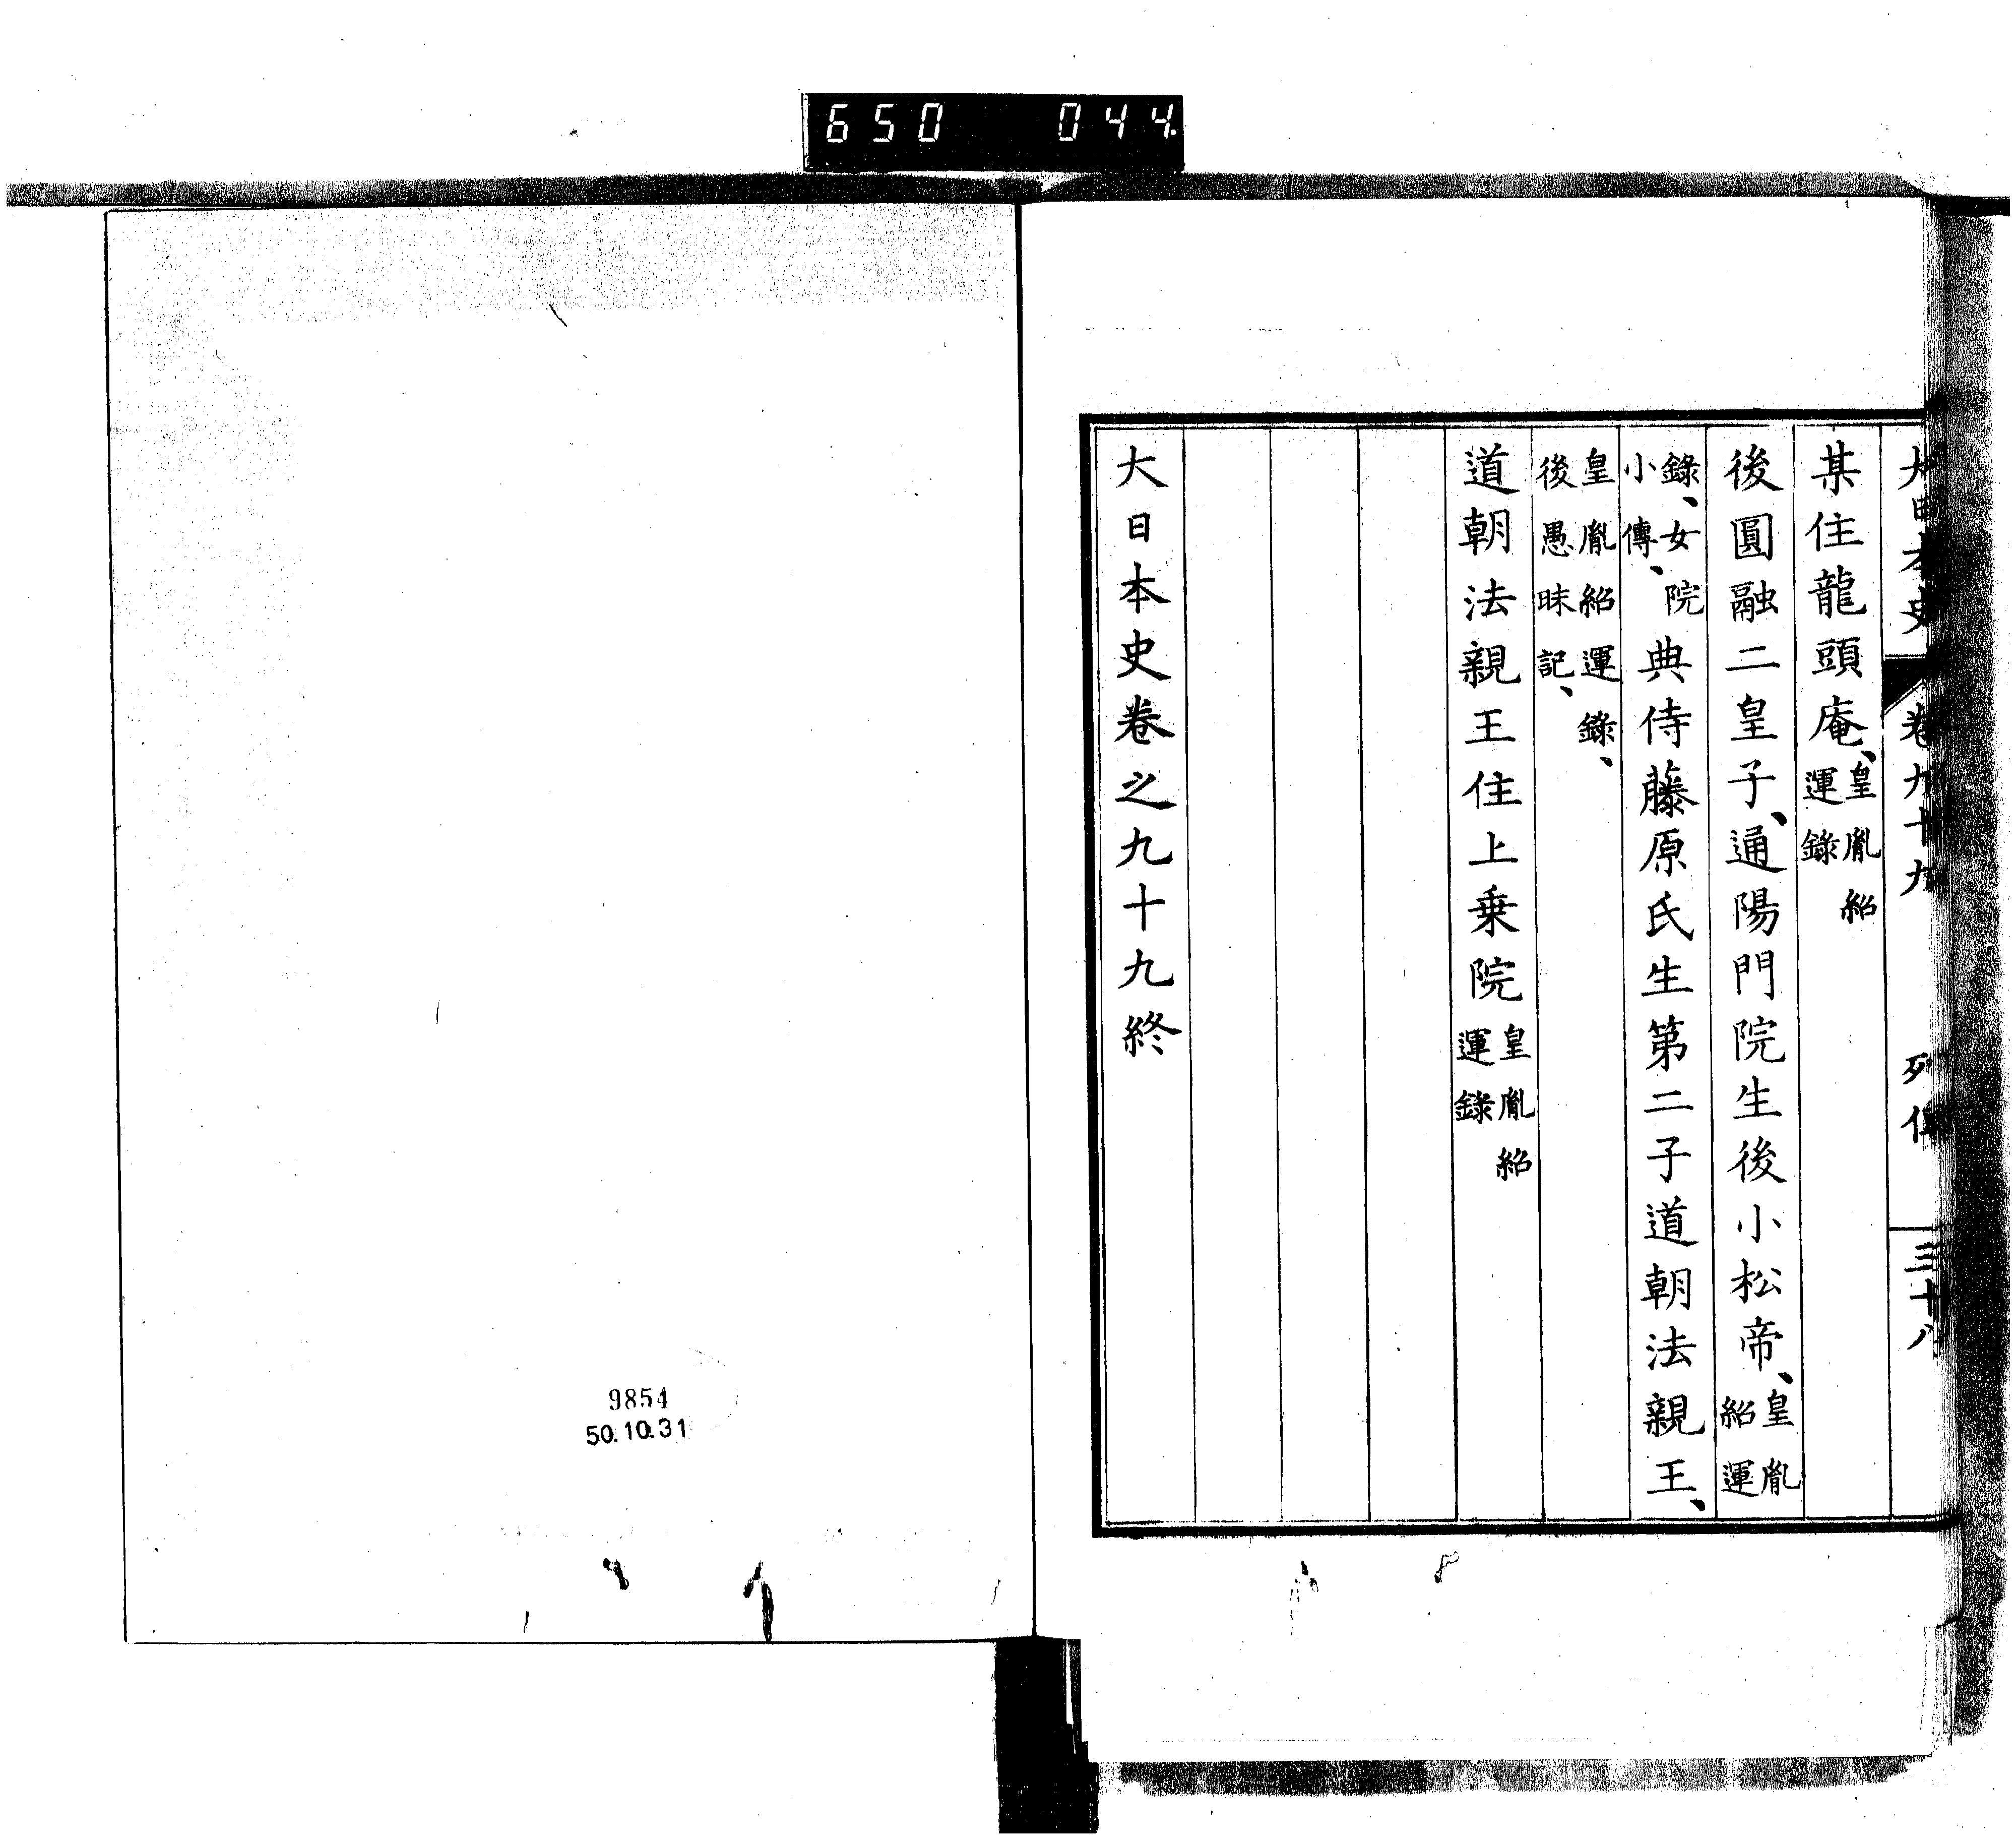 650 044
大日本史 卷九十九 列傳 三十八
某住龍頭庵、皇胤紹運錄
後圓融二皇子、通陽門院生後小松帝、皇胤紹運
錄、女院小傳、典侍藤原氏生第二子道朝法親王、
皇胤紹運錄、後愚昧記、
道朝法親王住上乗院皇胤紹運錄
大日本史卷之九十九終
9854
50.10.31